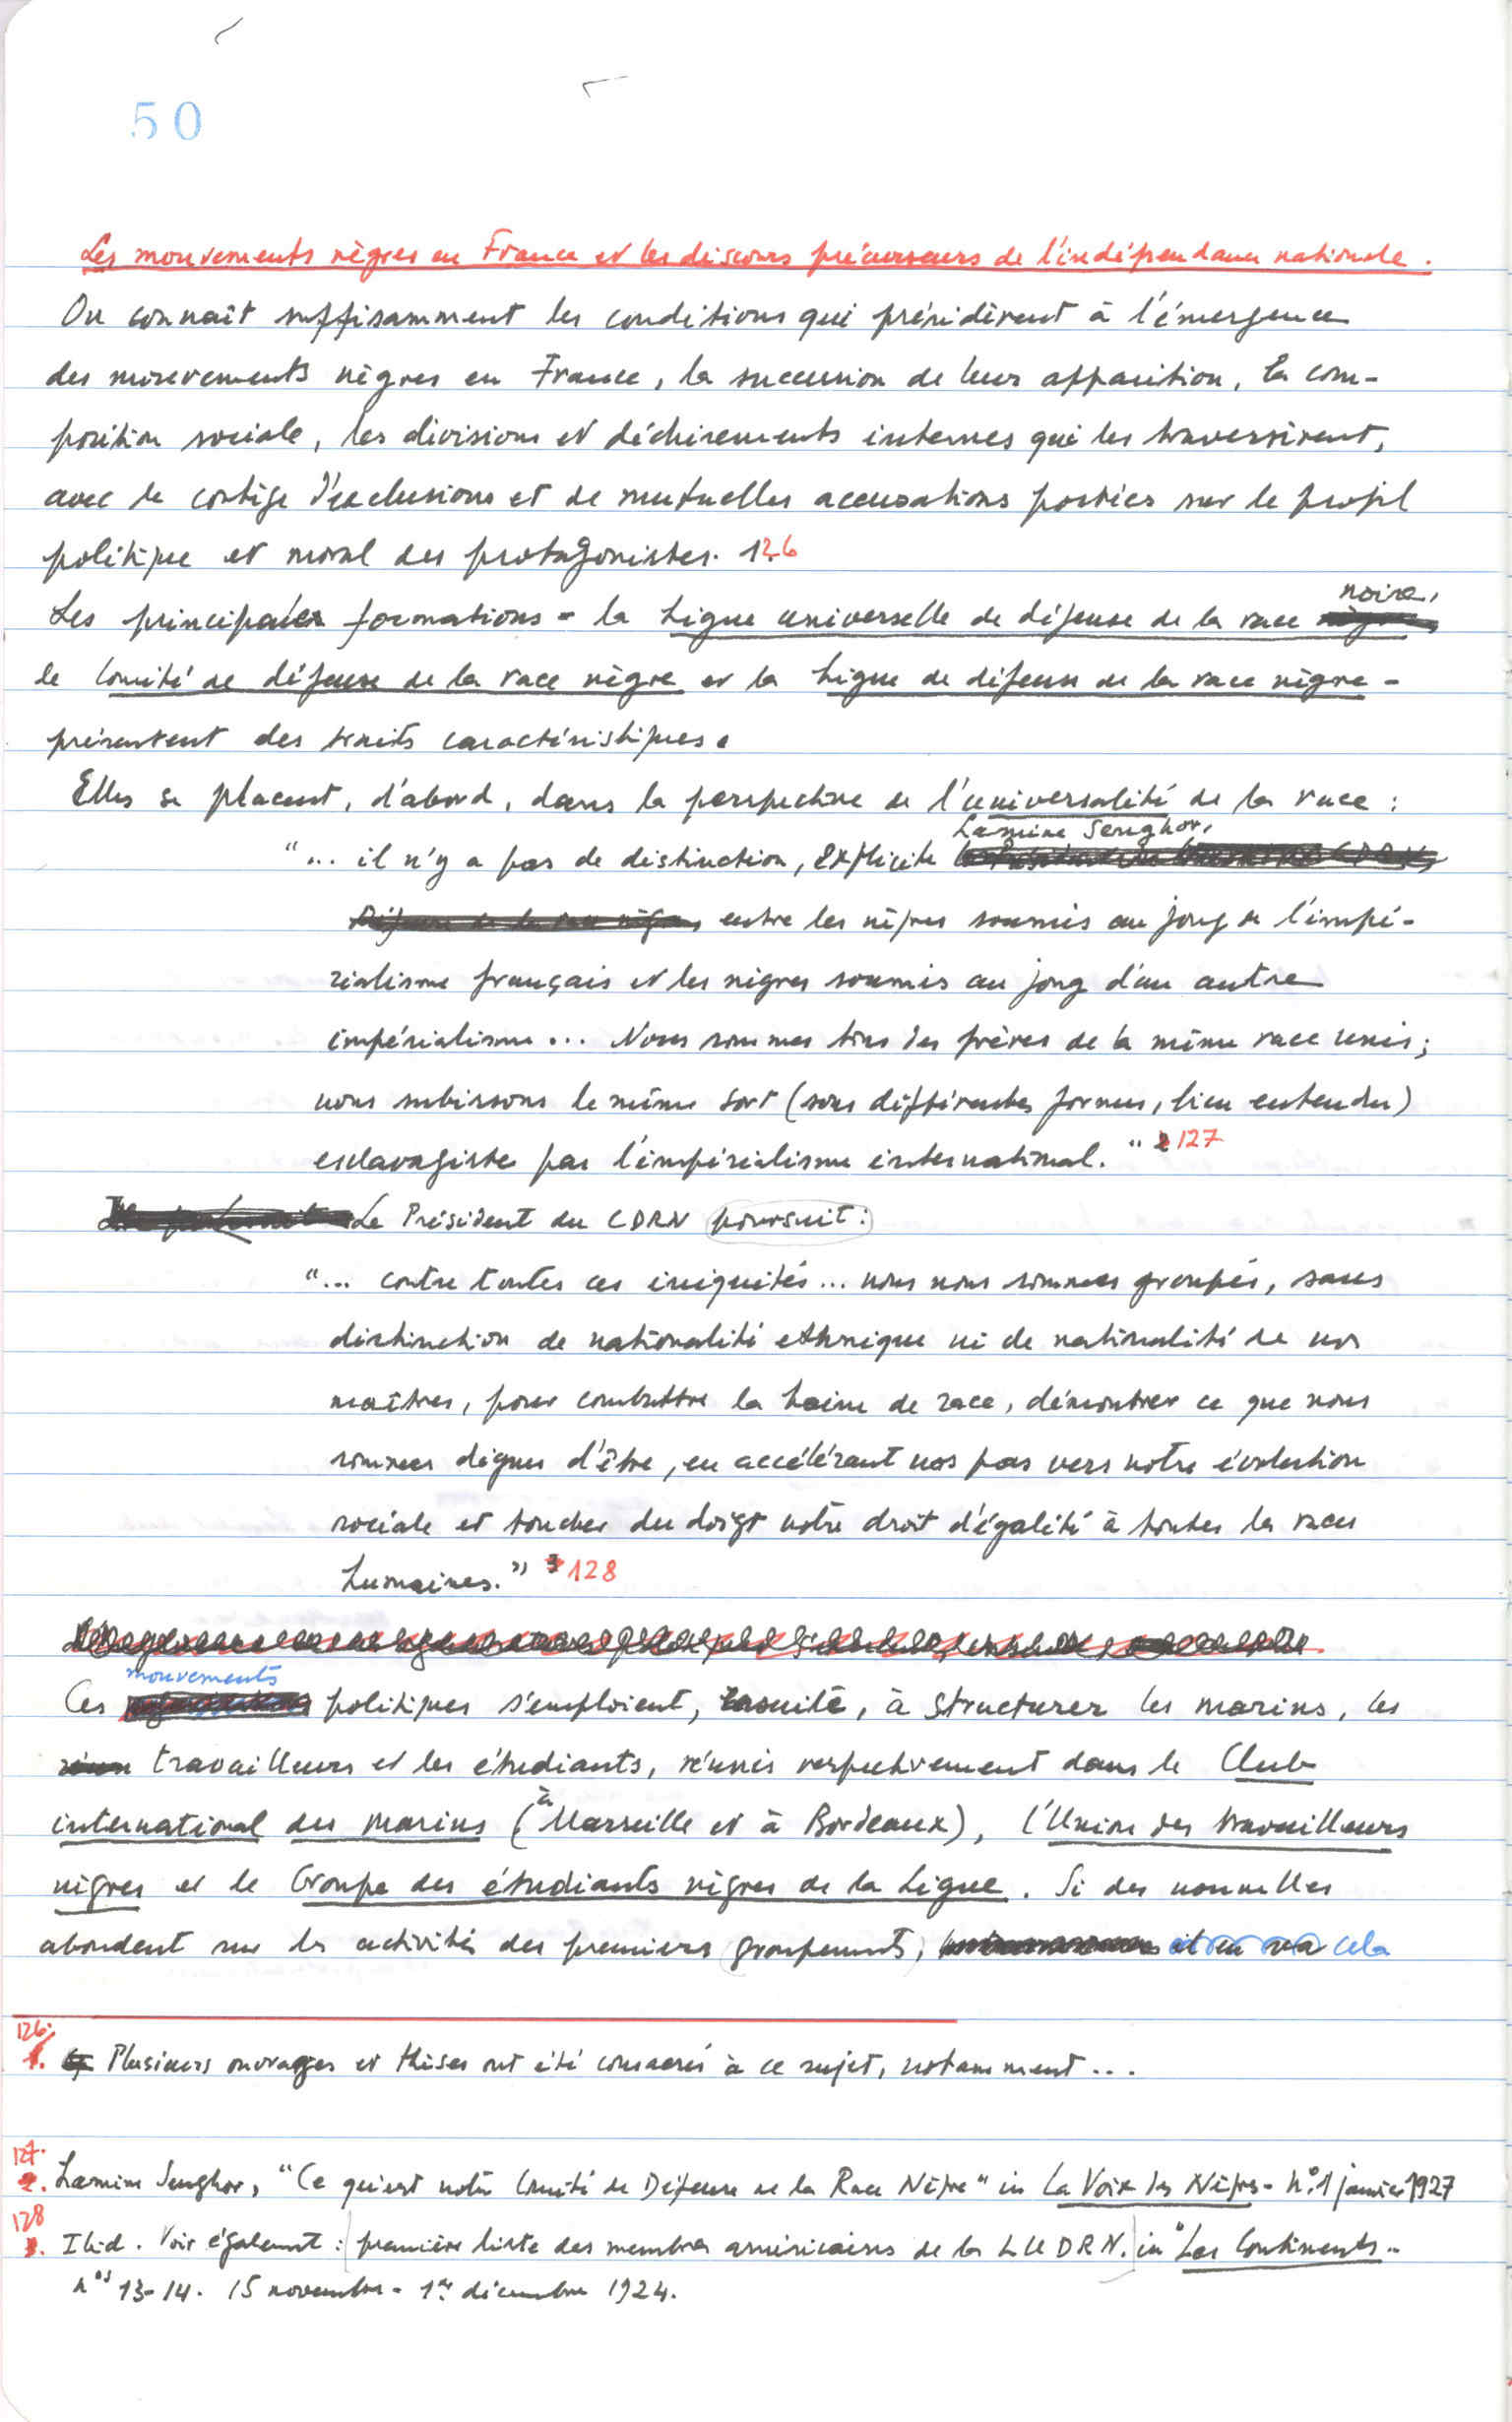 50
Les mouvements nègres en France et les discours précurseurs de l'indépendance nationale.
On connaît suffisamment les conditions qui présidèrent à l'émergence
des mouvements nègres en France, la succession de leur apparition, la com-
position sociale, les divisions et déchirements internes qui les traversèrent,
avec le cortège d'exclusions et de mutuelles accusations portées sur le profil
politique et moral des protagonistes. 126
noire,
Les principales formations - la Ligue universelle de défense de la race
le Comité de défense de la race nègre et la Ligue de défense de la race nègre -
présentent des traits caractéristiques.
Elles se placent, d'abord, dans la perspective de l'universalité de la race :
Lamine Senghor,
"... il n'y a pas de distinction, explicite
entre les nègres soumis au joug de l'impé-
rialisme français et les nègres soumis au joug d'un autre
impérialisme... Nous sommes tous des frères de la même race unis;
nous subissons le même sort (sous différentes formes, bien entendu)
esclavagiste par l'impérialisme international. " 127
Le Président du CDRN poursuit :
"... contre toutes ces iniquités... nous nous sommes groupés, sans
distinction de nationalité ethnique ni de nationalité de nos
maîtres, pour combattre la haine de race, démontrer ce que nous
sommes dignes d'être, en accélérant nos pas vers notre évolution
sociale et toucher du doigt notre droit d'égalité à toutes les races
humaines." 128
mouvements
Ces politiques s'emploient, ensuite, à structurer les marins, les
travailleurs et les étudiants, réunis respectivement dans le Club
international des marins (à Marseille et à Bordeaux), l'Union des travailleurs
nègres et le Groupe des étudiants nègres de la Ligue. Si des nouvelles
abondent sur les activités des premiers groupements, il en va cela
126. Plusieurs ouvrages et thèses ont été consacrés à ce sujet, notamment...
127. Lamine Senghor, "Ce qu'est notre Comité de Défense de la Race Nègre" in La Voix des Nègres - n° 1 janvier 1927
128. Ibid. Voir également : première liste des membres américains de la LUDRN. in "Les Continents -
nos 13-14. 15 novembre - 1er décembre 1924.